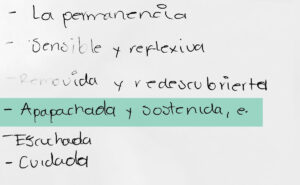 - La permanencia
- Sensible y reflexiva
- Removida y redescubierta
- Apapachada y sostenida, e.
- Escuchada
- Cuidada